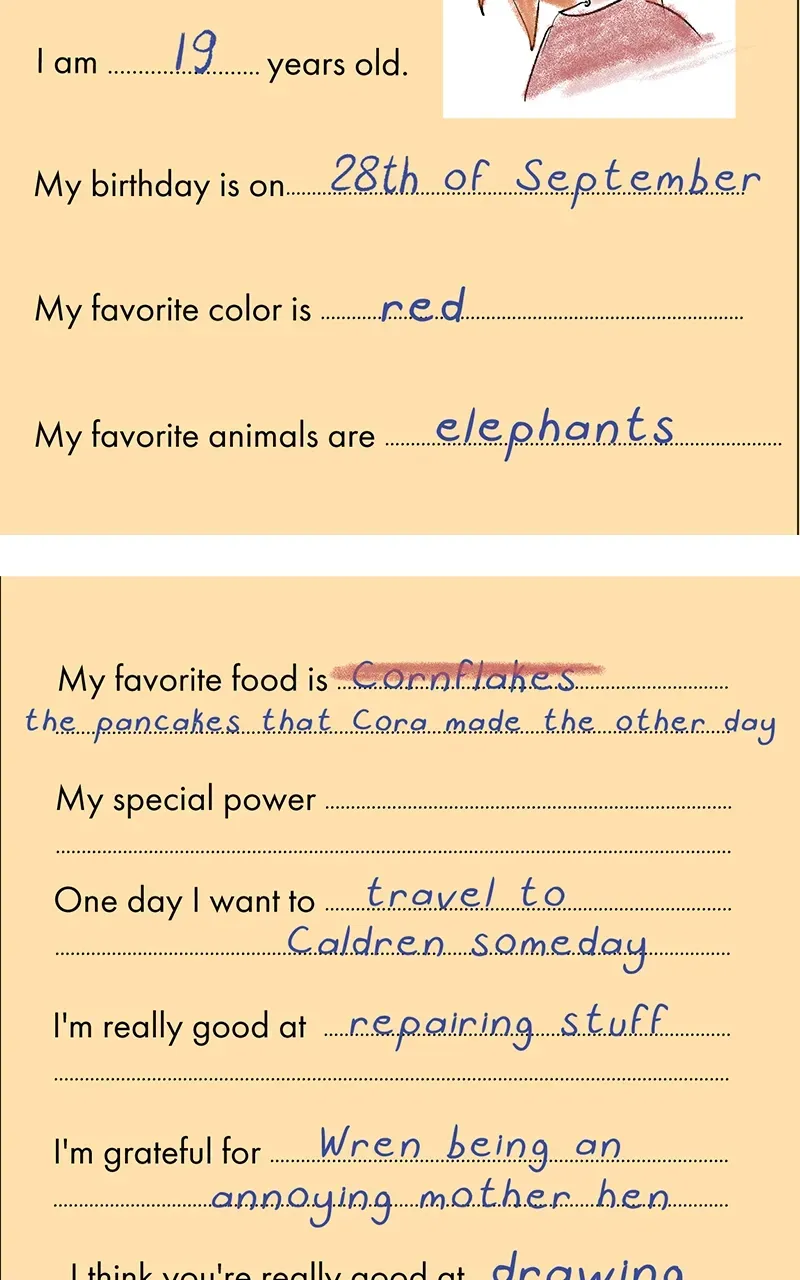 I am 19 years old.
My birthday is on 28th of September
My favorite color is red
My favorite animals are elephants
My favorite food is Cornflakes
the pancakes that Cora made the other day
My special power
One day I want to travel to
Caldren someday
I'm really good at repairing stuff
I'm grateful for Wren being an
annoying mother hen
I think you're really good at drawing